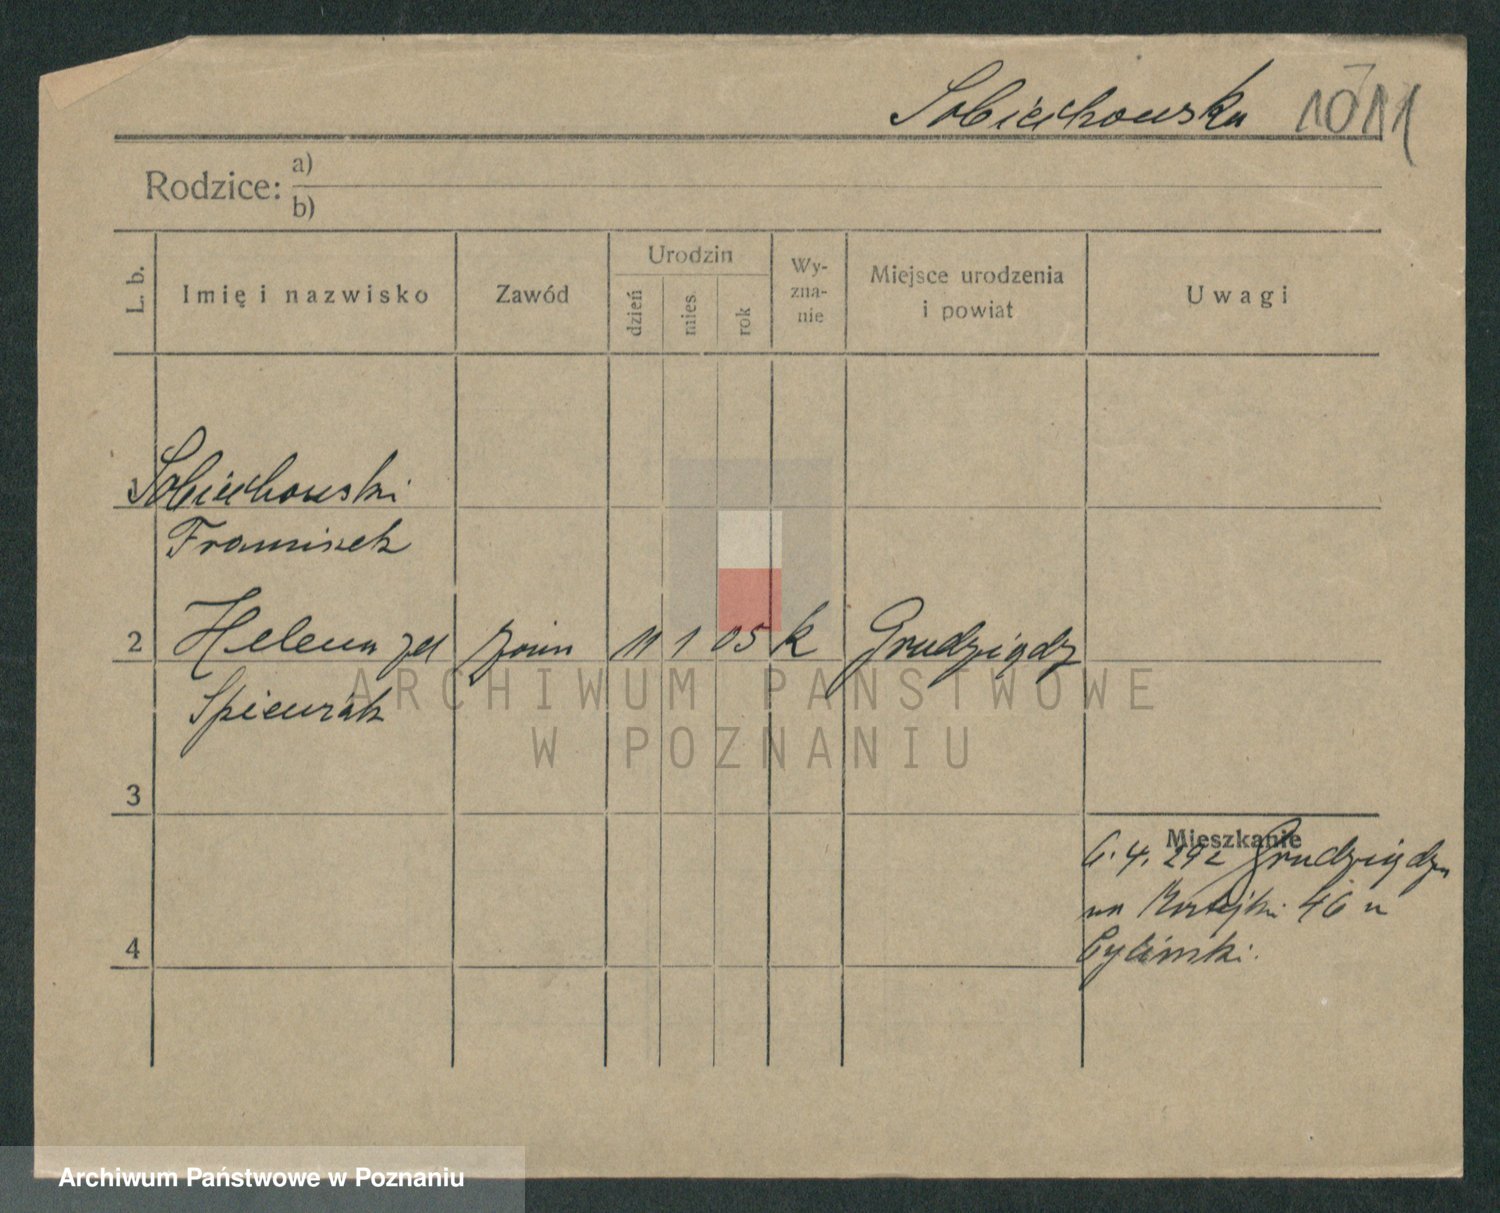 Sobiechowska 1011
Rodzice: a)
b)
L. b.
Imię i nazwisko
Zawód
Urodzin
dzień
mies.
rok
Wy-
zna-
nie
Miejsce urodzenia
i powiat
Uwagi
Sobiechowski
Franciszek
2 Helena zd 11 1 05 k Grudziądz
Śpiewrák
3
Mieszkanie
6. 4. 29 z Grudziądza
na 46 u
4
ARCHIWUM PAŃSTWOWE
W POZNANIU
Archiwum Państwowe w Poznaniu